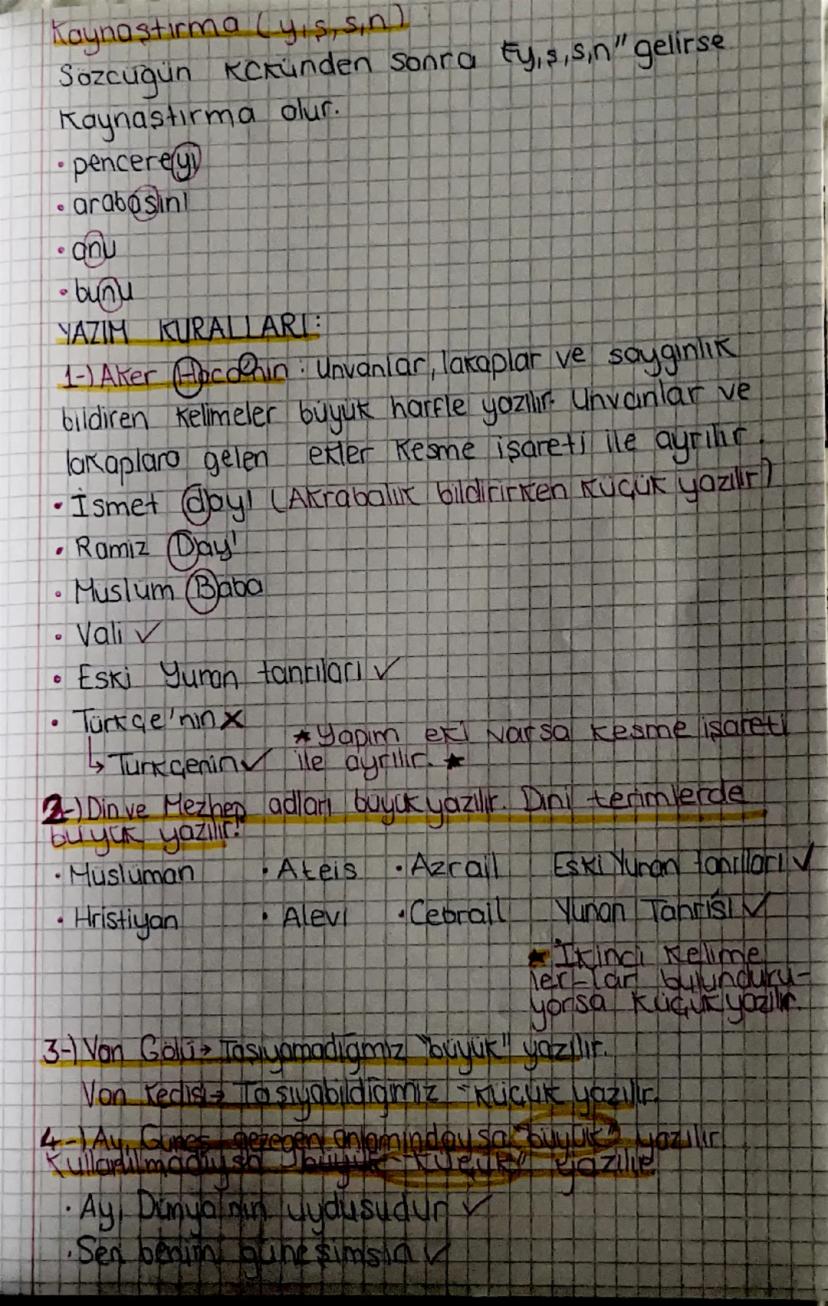 Kaynaştırma (y,ş,s,n)
Sözcüğün kökünden sonra "y,ş,s,n" gelirse
Kaynaştırma olur.
• pencereyi
• arabasını
• onu
• bunu
YAZIM KURALLARI:
1-) Aker Hoca'nın : Unvanlar, lakaplar ve saygınlık
bildiren kelimeler büyük harfle yazılır. Unvanlar ve
lakaplara gelen ekler kesme işareti ile ayrılır.
• İsmet dayı (Akrabalık bildirirken küçük yazılır)
• Ramiz Dayı
• Müslüm Baba
• Vali ✓
• Eski Yunan tanrıları ✓
• Türkçe'nin x
↳ Türkçenin ✓ ★ Yapım eki varsa kesme işareti
ile ayrılır. ★
2-) Din ve Mezhep adları büyük yazılır. Dini terimlerde
büyük yazılır.
• Müslüman • Ateis • Azrail Eski Yunan tanrıları ✓
• Hristiyan • Alevi • Cebrail Yunan Tanrısı ✓
★ İkinci kelime
ler-lar bulunduru-
yorsa küçük yazılır.
3-) Van Gölü → Taşıyamadığmız "büyük" yazılır.
Van kedisi → Taşıyabildiğmiz "küçük yazılır.
4-) Ay, Güneş gezegen anlamındaysa "büyük" yazılır
Kullanılmadıysa büyük "küçük" yazılır
• Ay, Dünya'nın uydusudur ✓
• Sen benim güneşimsin ✓